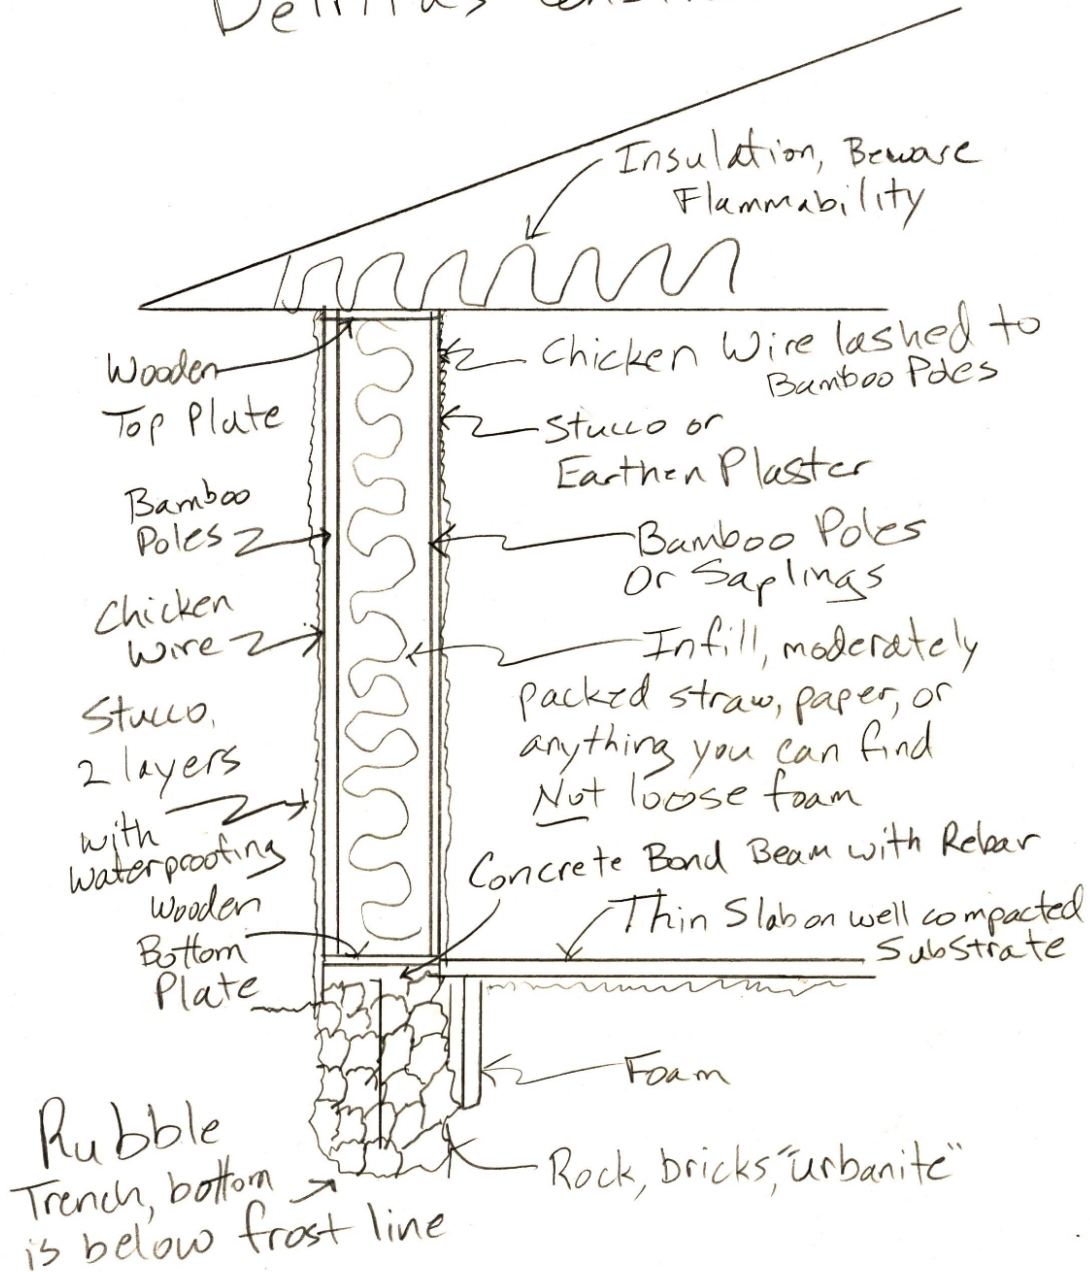 Insulation, Beware
Flammability
Wooden
Top Plate
Chicken Wire lashed to
Bamboo Poles
Stucco or
Earthen Plaster
Bamboo
Poles
Bamboo Poles
Or Saplings
Chicken
Wire
Infill, moderately
packed straw, paper, or
anything you can find
Not loose foam
Stucco,
2 layers
with
waterproofing
Concrete Bond Beam with Rebar
Wooden
Bottom
Plate
Thin Slab on well compacted
Substrate
Foam
Rubble
Trench, bottom
is below frost line
Rock, bricks, "urbanite"